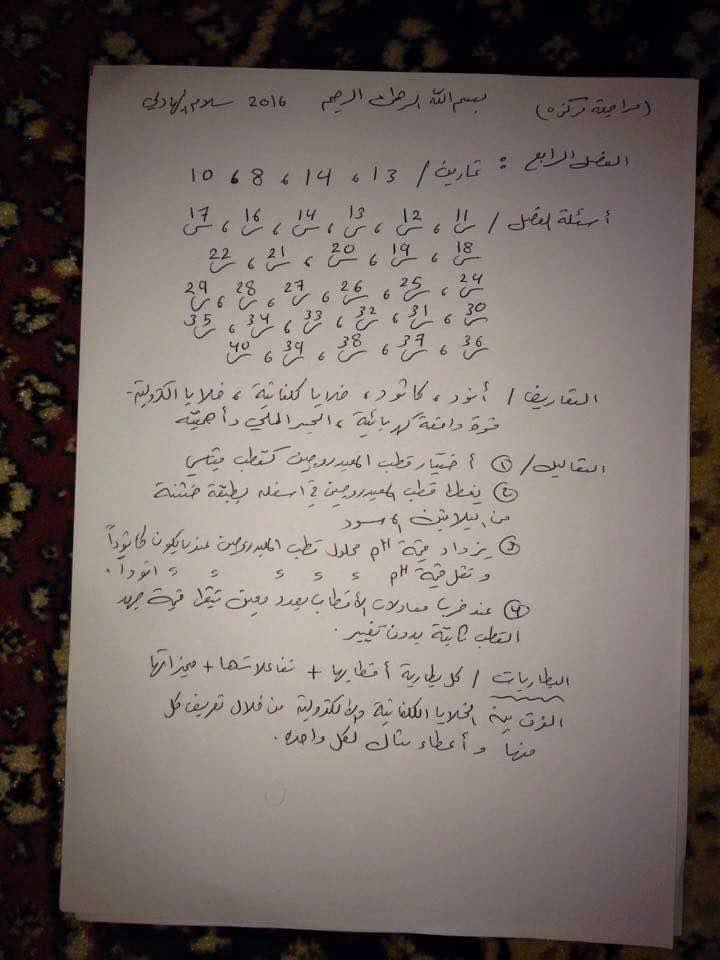 (مراجعة مركزة) بسم الله الرحمن الرحيم 2016 سلام الهادلي
الفصل الرابع : تمارين / 13 ، 14 ، 8 ، 10
أسئلة الفصل / س11 ، س12 ، س13 ، س14 ، س16 ، س17
س18 ، س19 ، س20 ، س21 ، س22
س24 ، س25 ، س26 ، س27 ، س28 ، س29
س30 ، س31 ، س32 ، س33 ، س34 ، س35
س36 ، س37 ، س38 ، س39 ، س40
التعاريف / أنود ، كاثود ، خلايا كلفانية ، خلايا الكترولية
قوة دافعة كهربائية ، الجسر الملحي وأهميته
التعاليل / ① أختيار قطب الهيدروجين كقطب قياسي
② يغطى قطب الهيدروجين في اسفله بطبقة خشنة
من البلاتين الاسود
③ يزداد قيمة pH محلول قطب الهيدروجين عندما يكون كاثوداً
وتقل قيمة pH ء ء ء ء ء انوداً .
④ عند ضرب معادلات الأقطاب بعدد معين تبقى قيمة جهد
القطب ثابتة بدون تغيير .
البطاريات / كل بطارية أقطابها + تفاعلاتها + مميزاتها
الفرق بين الخلايا الكلفانية والالكترولية من خلال تعريف كل
منها و أعطاء مثال لكل واحدة .